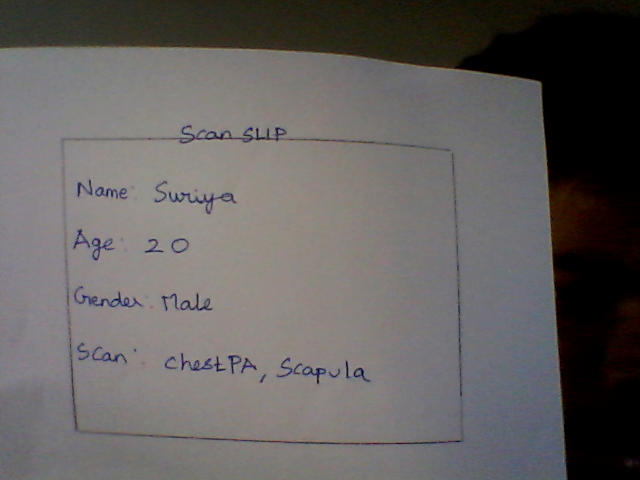 Scan SLIP
Name: Suriya
Age: 20
Gender: Male
Scan: chest PA, Scapula